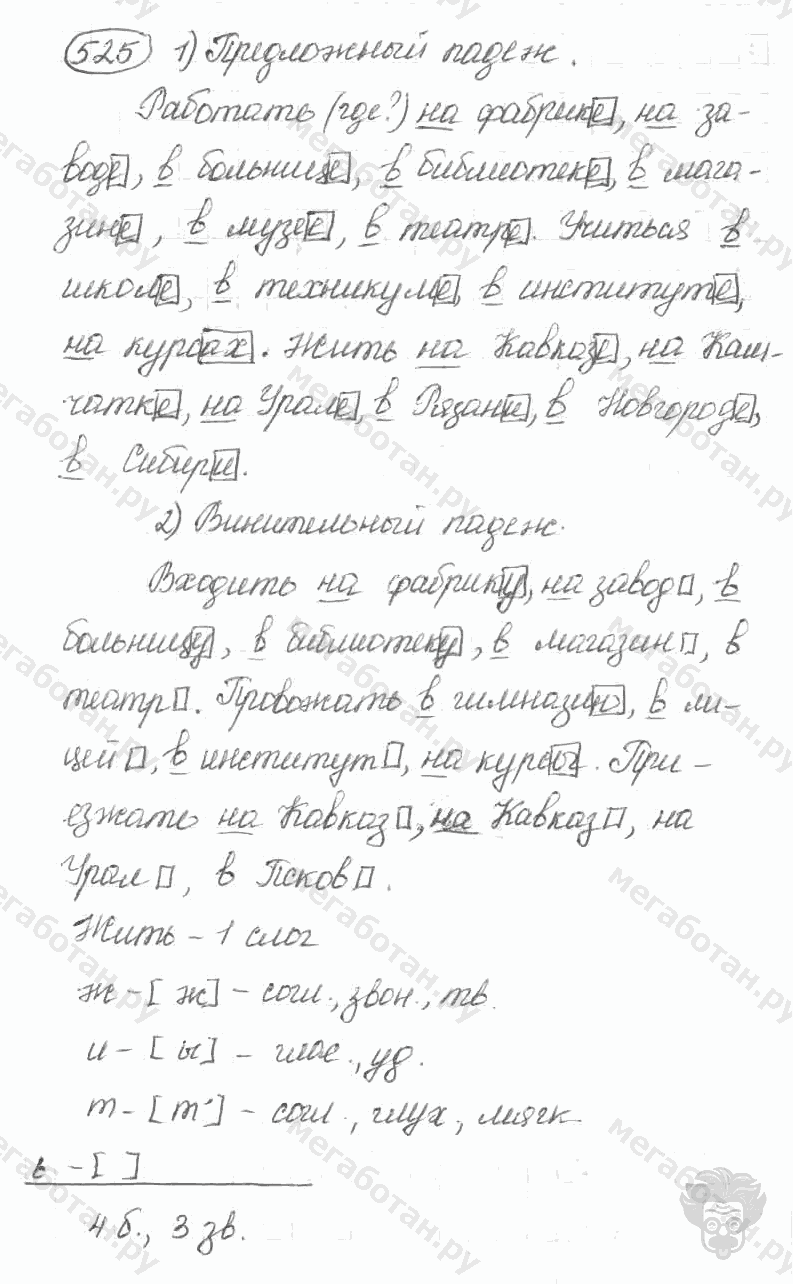 525 1) Предложный падеж.
Работать (где?) на фабрике, на за-
воде, в больнице, в библиотеке, в мага-
зине, в музее, в театре. Учиться в
школе, в техникуме, в институте,
на курсах. Жить на Кавказе, на Кам-
чатке, на Урале, в Рязани, в Новгороде,
в Сибири.
2) Винительный падеж.
Входить на фабрику, на завод, в
больницу, в библиотеку, в магазин, в
театр. Провожать в гимназию, в ли-
цей, в институт, на курсы. При-
езжать на Кавказ, на Кавказ, на
Урал, в Псков.
Жить - 1 слог
ж - [ж] - согл., звон., тв.
и - [ы] - глас., уд.
т - [т'] - согл., глух., мягк.
ь - [ ]
4 б., 3 зв.
мегаботан.ру